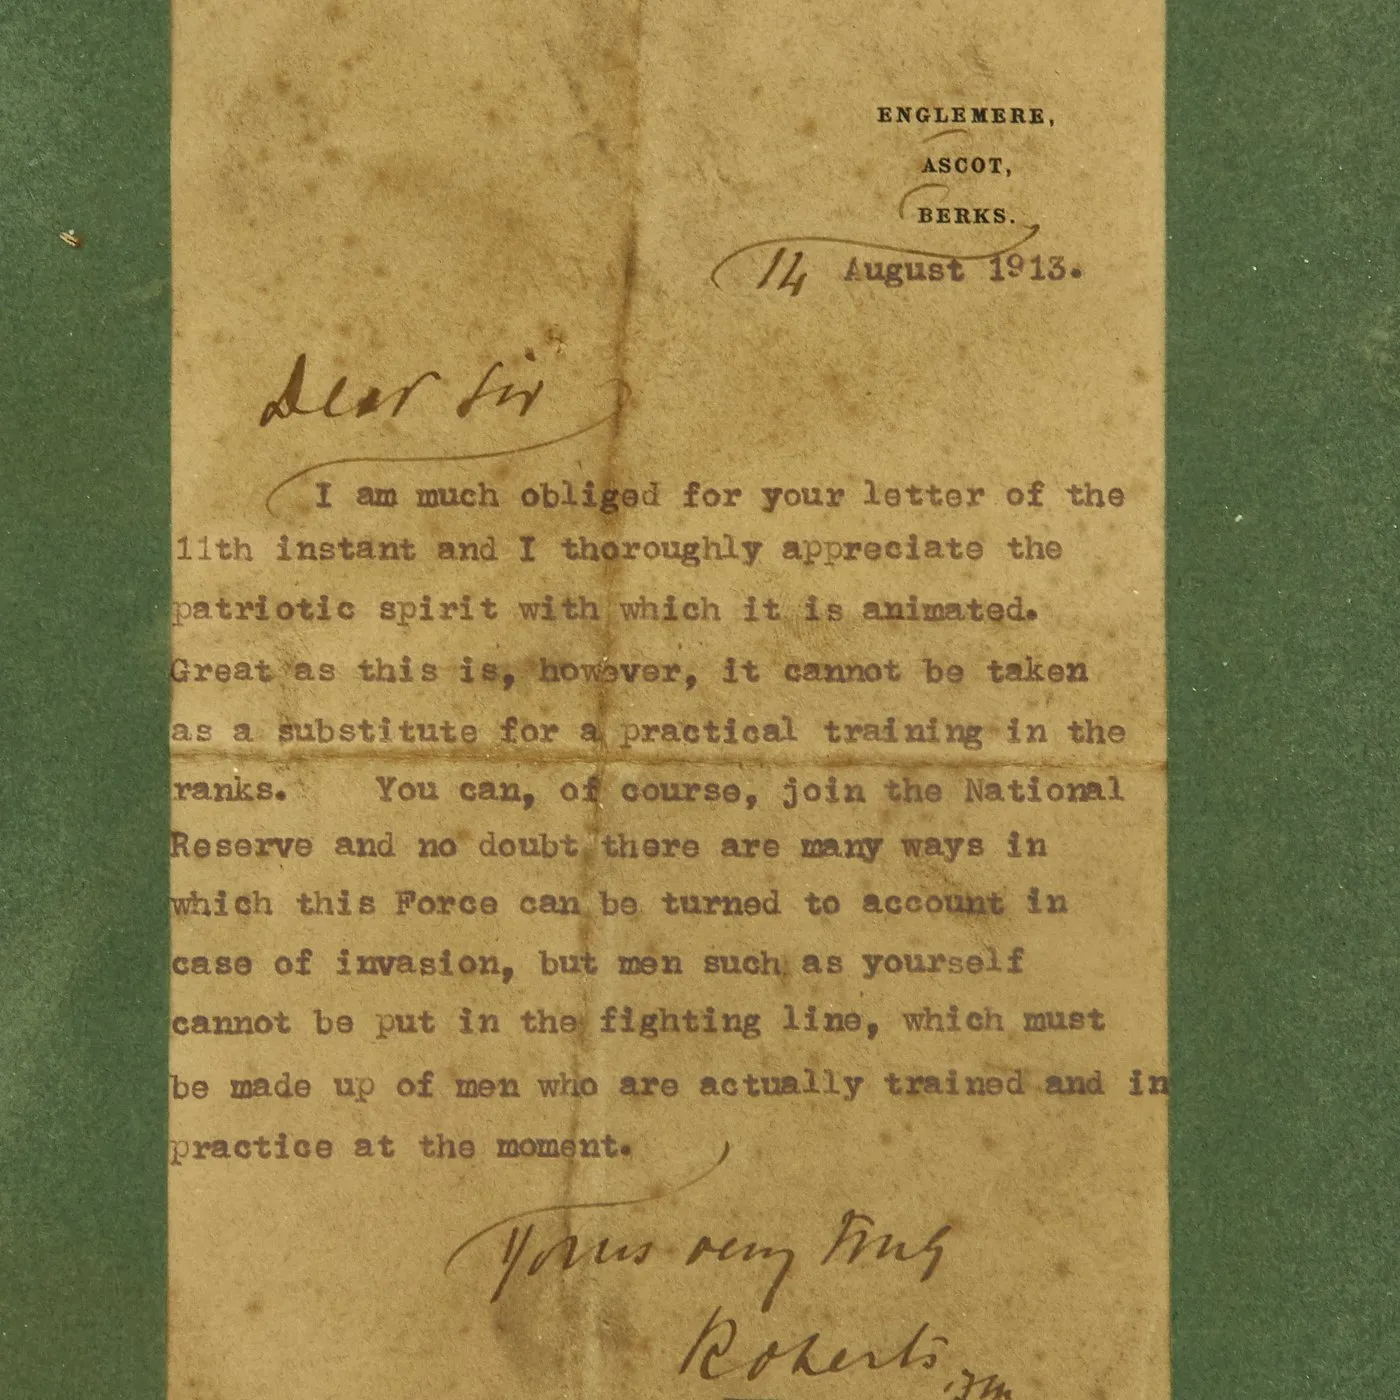 ENGLEMERE,
ASCOT,
BERKS.
14 August 1913.
Dear Sir
I am much obliged for your letter of the
11th instant and I thoroughly appreciate the
patriotic spirit with which it is animated.
Great as this is, however, it cannot be taken
as a substitute for a practical training in the
ranks. You can, of course, join the National
Reserve and no doubt there are many ways in
which this Force can be turned to account in
case of invasion, but men such as yourself
cannot be put in the fighting line, which must
be made up of men who are actually trained and in
practice at the moment.
Yours very truly
Roberts